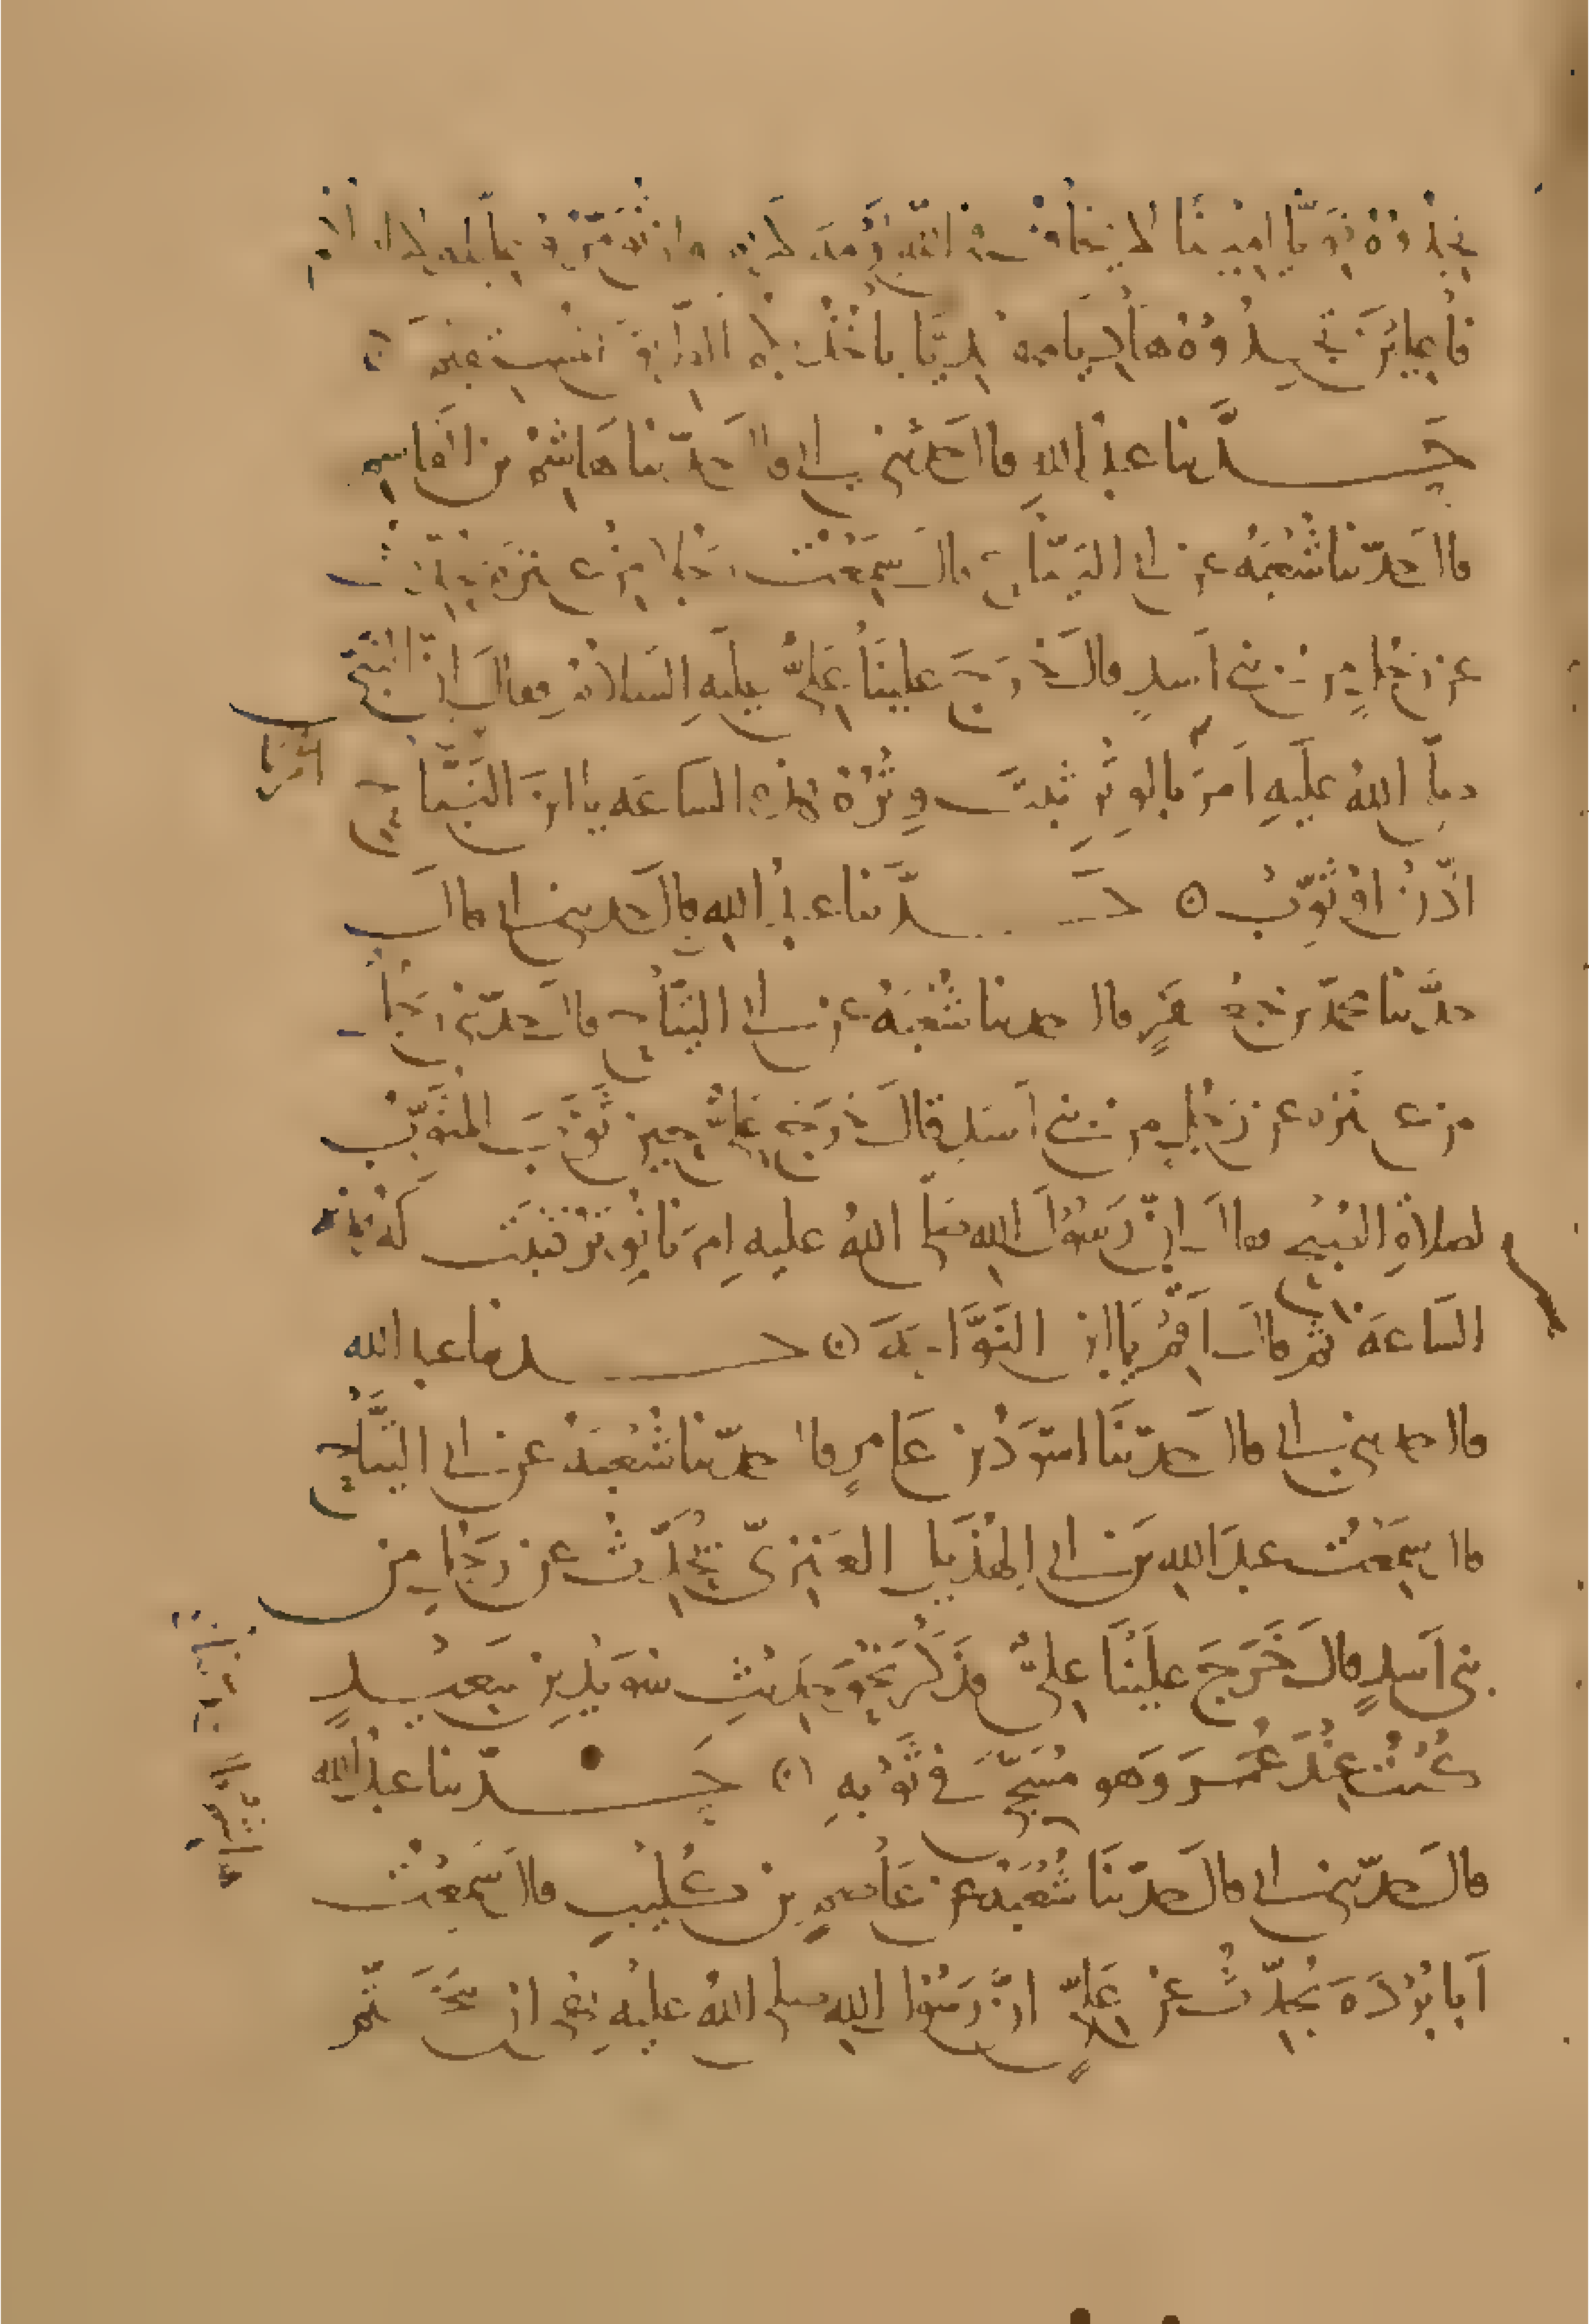 تجدوه قويا امينا لا يخاف في الله لومة لائم وان تؤمروا عليا ولا اراكم
فاعلين تجدوه هاديا مهديا ياخذ بكم الطريق المستقيم
حدثنا عبد الله قال حدثني ابي قال حدثنا هاشم بن القاسم
قال حدثنا شعبة عن ابي التياح قال سمعت رجلا من عنزة يحدث
عن رجل من بني اسد قال خرج علينا علي عليه السلام فقال ان النبي
صلى الله عليه امر بالوتر ثبت وتره هذه الساعة يا ابن التياح
اذن او ثوب حدثنا عبد الله قال حدثني ابي قال
حدثنا محمد بن جعفر قال حدثنا شعبة عن ابي التياح قال حدثني رجل
من عنزة عن رجل من بني اسد قال خرج علي حين ثوب المثوب
لصلاة الصبح فقال ان رسول الله صلى الله عليه امرنا بوتر فثبت له هذه
الساعة ثم قال اقم يا ابن النواحة حدثنا عبد الله
قال حدثني ابي قال حدثنا اسود بن عامر قال حدثنا شعبة عن ابي التياح
قال سمعت عبد الله بن ابي الهذيل العنزي يحدث عن رجل من
بني اسد قال خرج علينا علي فذكر نحو حديث سويد بن سعيد
كنت عند عمر وهو مسجى في ثوبه حدثنا عبد الله
قال حدثني ابي قال حدثنا شعبة عن عاصم بن كليب قال سمعت
ابا بردة يحدث عن علي ان رسول الله صلى الله عليه نهى ان ثم